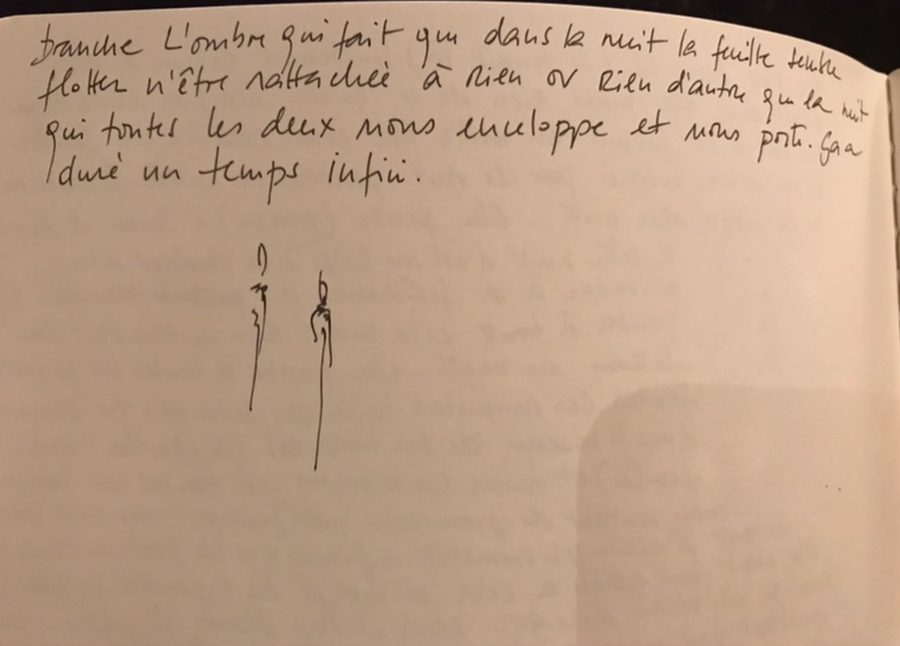 branche L'ombre qui fait que dans la nuit la feuille semble
flotter n'être rattachée à rien ou rien d'autre que la nuit
qui toutes les deux nous enveloppe et nous porte. ça a
duré un temps infini.